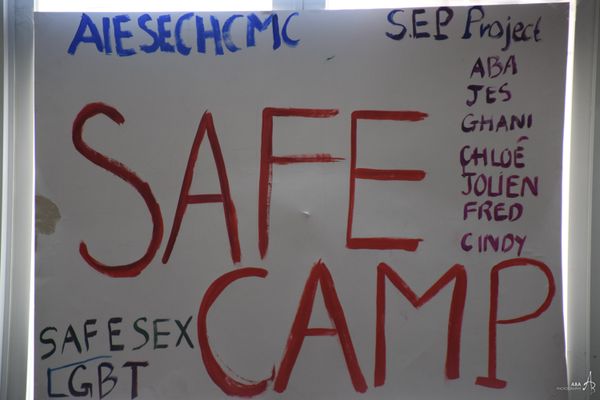 AIESECHCMC
S.E.P Project
ABA
JES
GHANI
CHLOÉ
JOLIEN
FRED
CINDY
SAFE
CAMP
SAFE SEX
LGBT
ABA